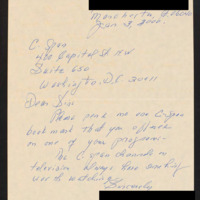 Manchester,
Jan 3, 2001.
C-Span
400 Capital St. N.W
Suite 650
Washington, D.C 20001
Dear Sirs
Please send me one C-Span
book mark that you offered
in one of your programs.
The C-span channels on
television always have something
worth watching.
Sincerely